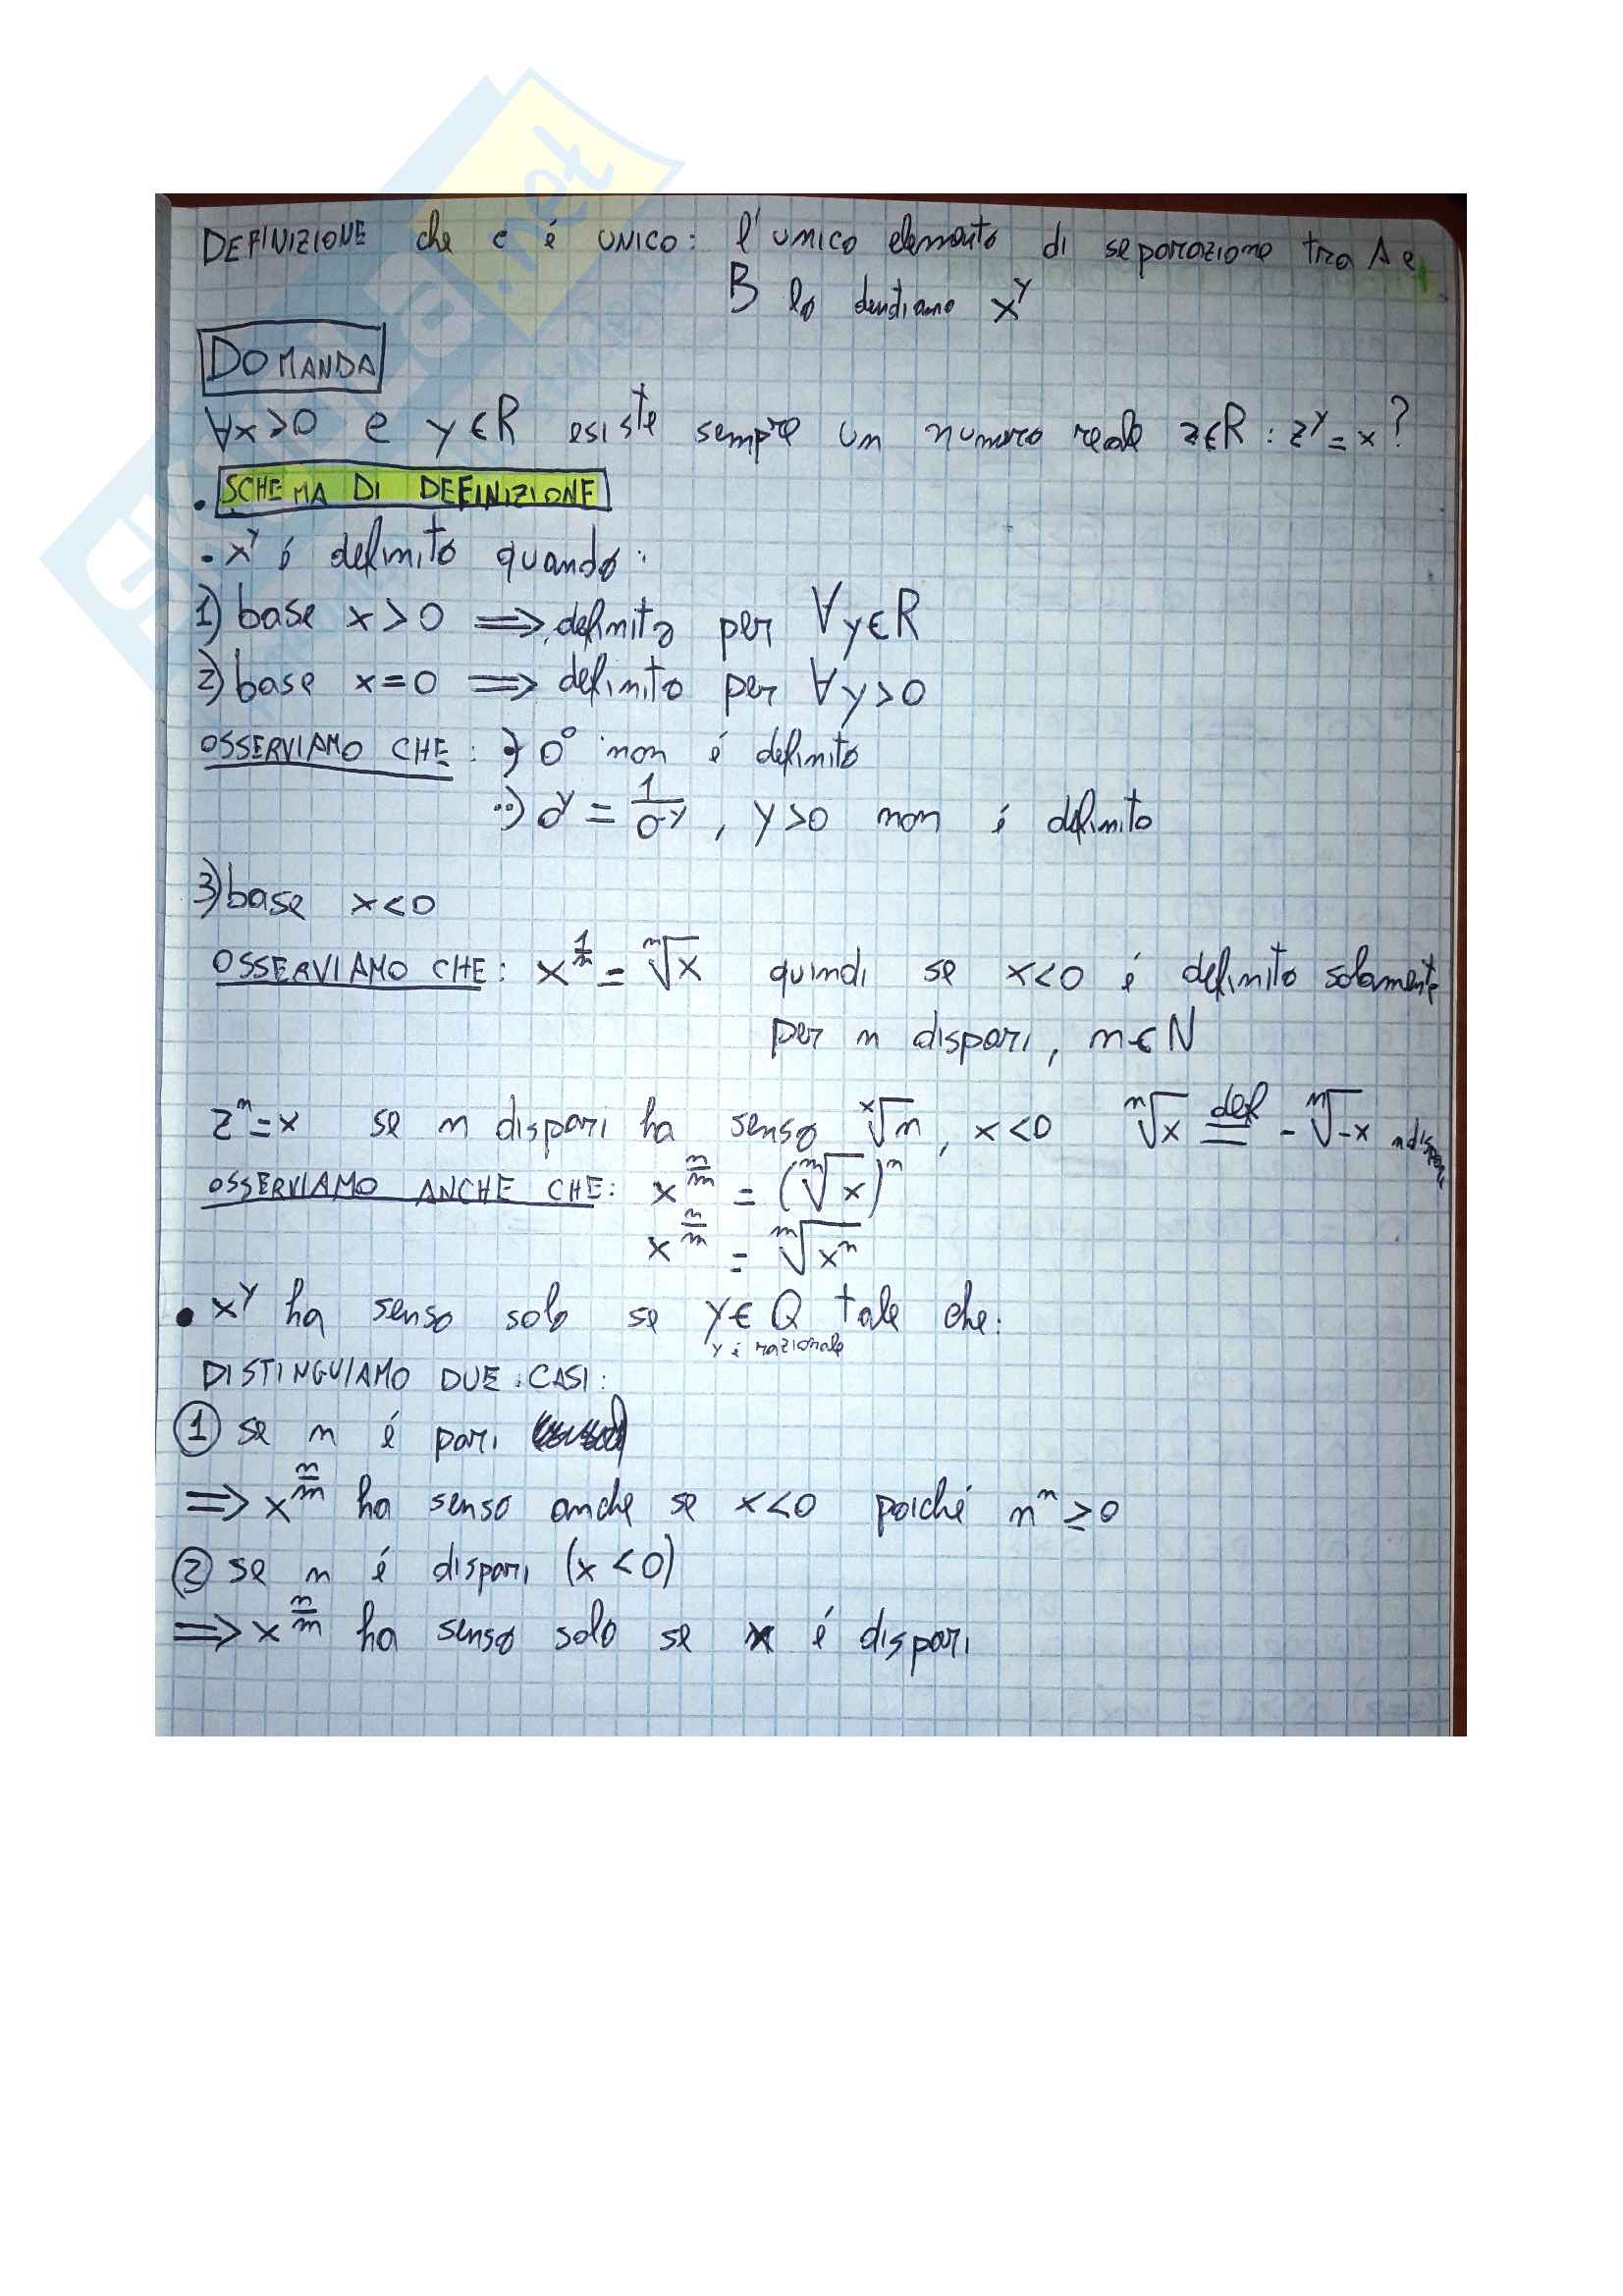 DEFINIZIONE che c é UNICO: l'unico elemento di separazione tra A e
B lo denotiamo x^y
DOMANDA
∀x>0 e y∈R esiste sempre un numero reale z∈R : z^y = x ?
• SCHEMA DI DEFINIZIONE
• x^y é definito quando:
1) base x>0 ⟹ definito per ∀y∈R
2) base x=0 ⟹ definito per ∀y>0
OSSERVIAMO CHE: •) 0^0 non é definito
••) 0^y = 1/0^-y , y>0 non é definito
3) base x<0
OSSERVIAMO CHE: x^(1/n) = ⁿ√x quindi se x<0 é definito solamente
per n dispari, n∈N
z^n = x se n dispari ha senso ˣ√n, x<0 ⁿ√x def= - ⁿ√-x n dispari
OSSERVIAMO ANCHE CHE: x^(n/m) = (ᵐ√x)^n
x^(n/m) = ᵐ√x^n
• x^y ha senso solo se y∈Q tale che:
y é razionale
DISTINGUIAMO DUE CASI:
① se n é pari
⟹ x^(n/m) ha senso anche se x<0 poiché n^n ≥0
② se n é dispari (x<0)
⟹ x^(n/m) ha senso solo se é dispari
.net